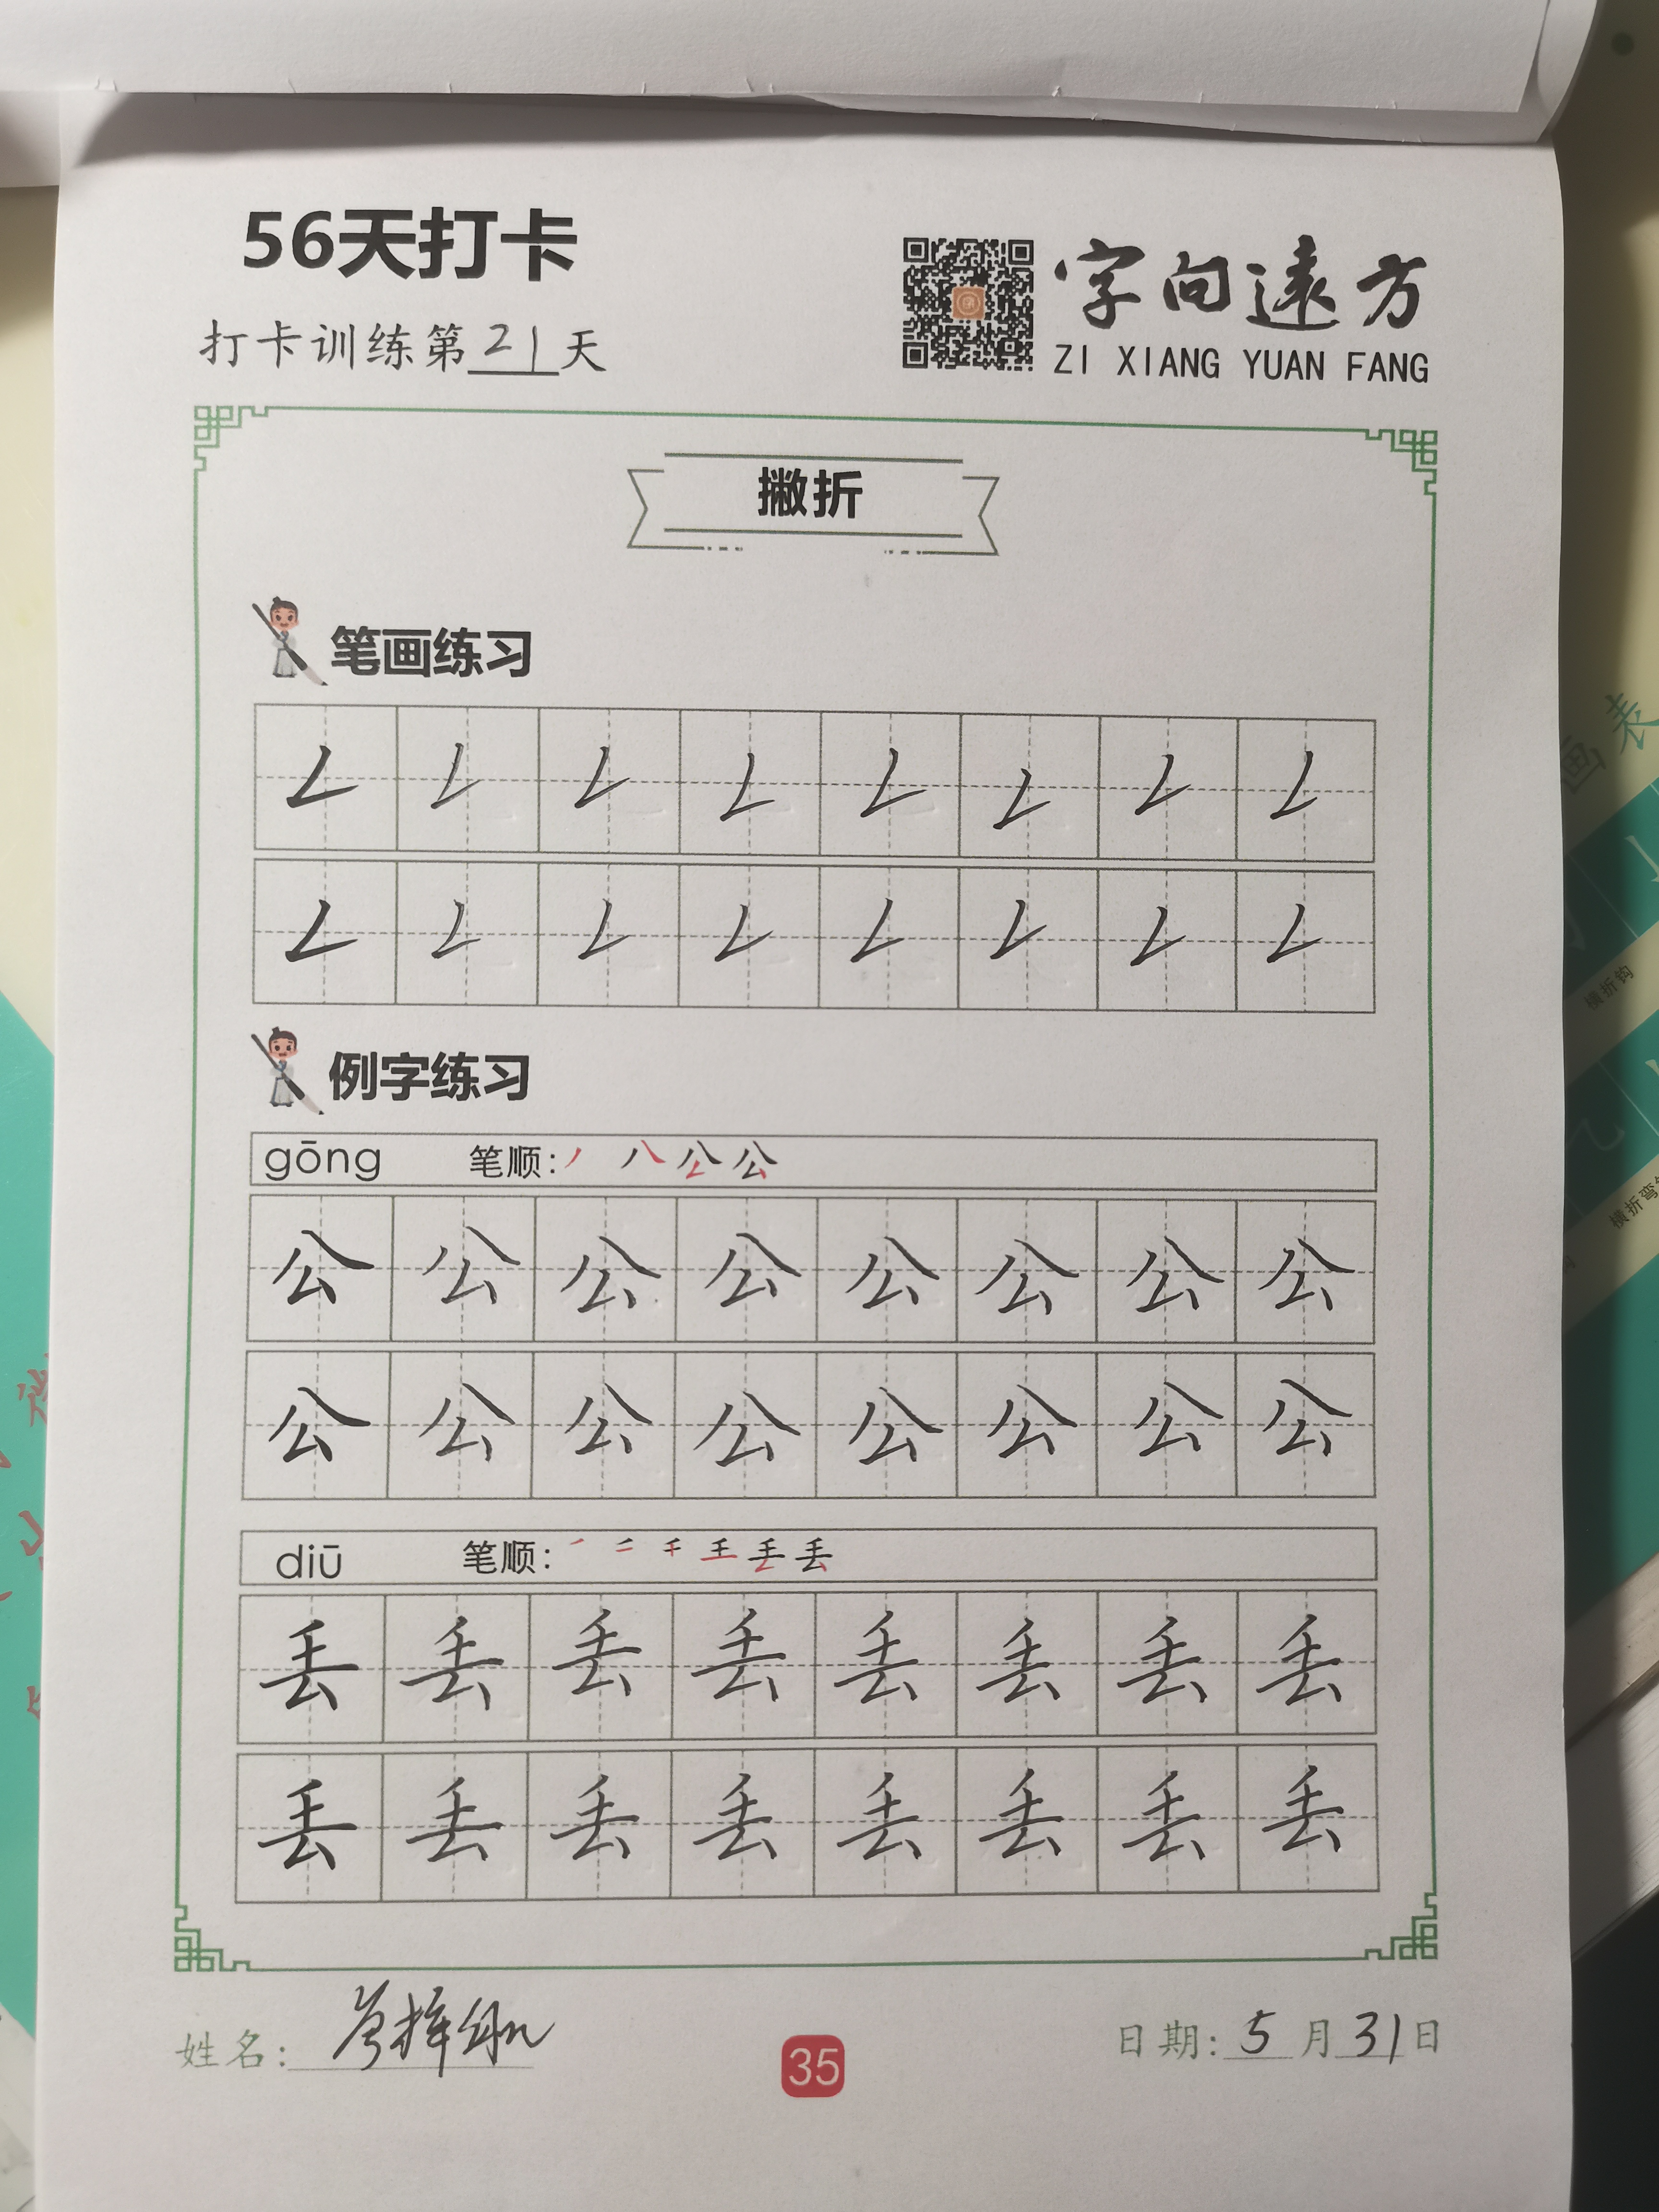 56天打卡
字向遠方
ZI XIANG YUAN FANG
打卡训练第21天
撇折
笔画练习
𠃋 𠃋 𠃋 𠃋 𠃋 𠃋 𠃋 𠃋
𠃋 𠃋 𠃋 𠃋 𠃋 𠃋 𠃋 𠃋
例字练习
gōng 笔顺:
公 公 公 公 公 公 公 公
公 公 公 公 公 公 公 公
diū 笔顺:
丢 丢 丢 丢 丢 丢 丢 丢
丢 丢 丢 丢 丢 丢 丢 丢
姓名:
35
日期: 5月31日
画表
横折钩